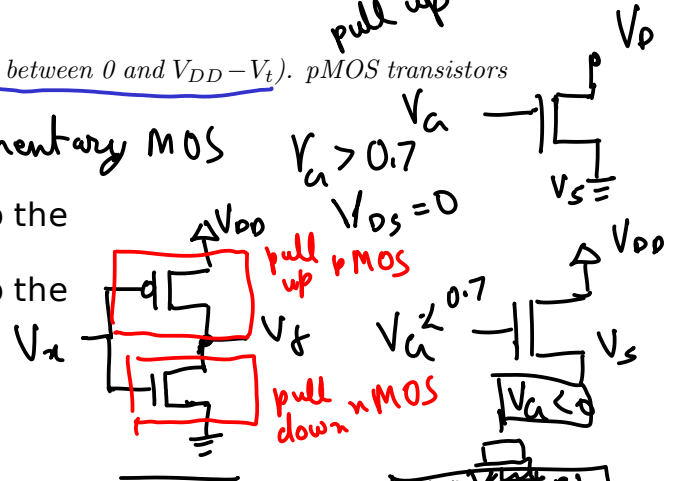 pull up
V_D
between 0 and V_DD − V_t). pMOS transistors
V_G
mentary MOS
V_G > 0.7
V_S
o the
V_DS = 0
V_DD
pull up pMOS
V_DD
o the
V_G < 0.7
V_x
V_f
V_S
pull down nMOS
V_G < 0